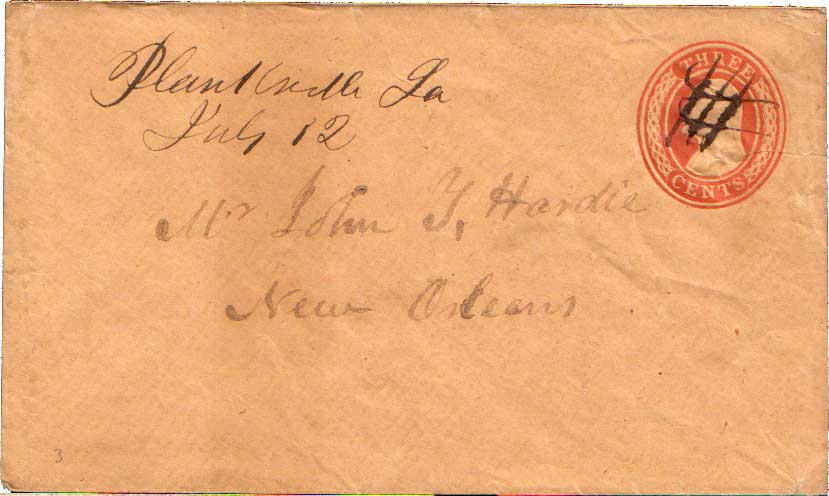 Plankville La
July 12
THREE
CENTS
Mr John T, Hardie
New Orleans
3